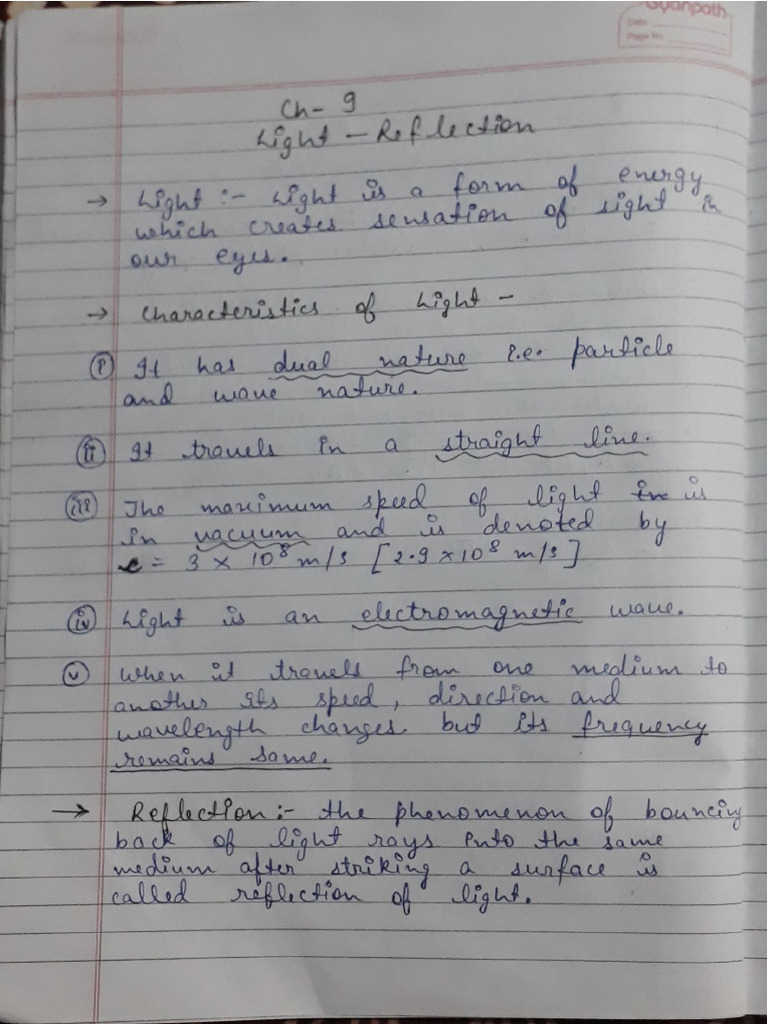 Gyanpath
Date
Page No.
Ch- 9
Light - Reflection
→ Light :- Light is a form of energy
which creates sensation of sight in
our eyes.
→ Characteristics of Light -
(i) It has dual nature i.e. particle
and wave nature.
(ii) It travels in a straight line.
(iii) The maximum speed of light in is
in vacuum and is denoted by
c = 3 × 10⁸ m/s [2.9 × 10⁸ m/s]
(iv) Light is an electromagnetic wave.
(v) When it travels from one medium to
another its speed, direction and
wavelength changes but its frequency
remains same.
→ Reflection :- the phenomenon of bouncing
back of light rays into the same
medium after striking a surface is
called reflection of light.